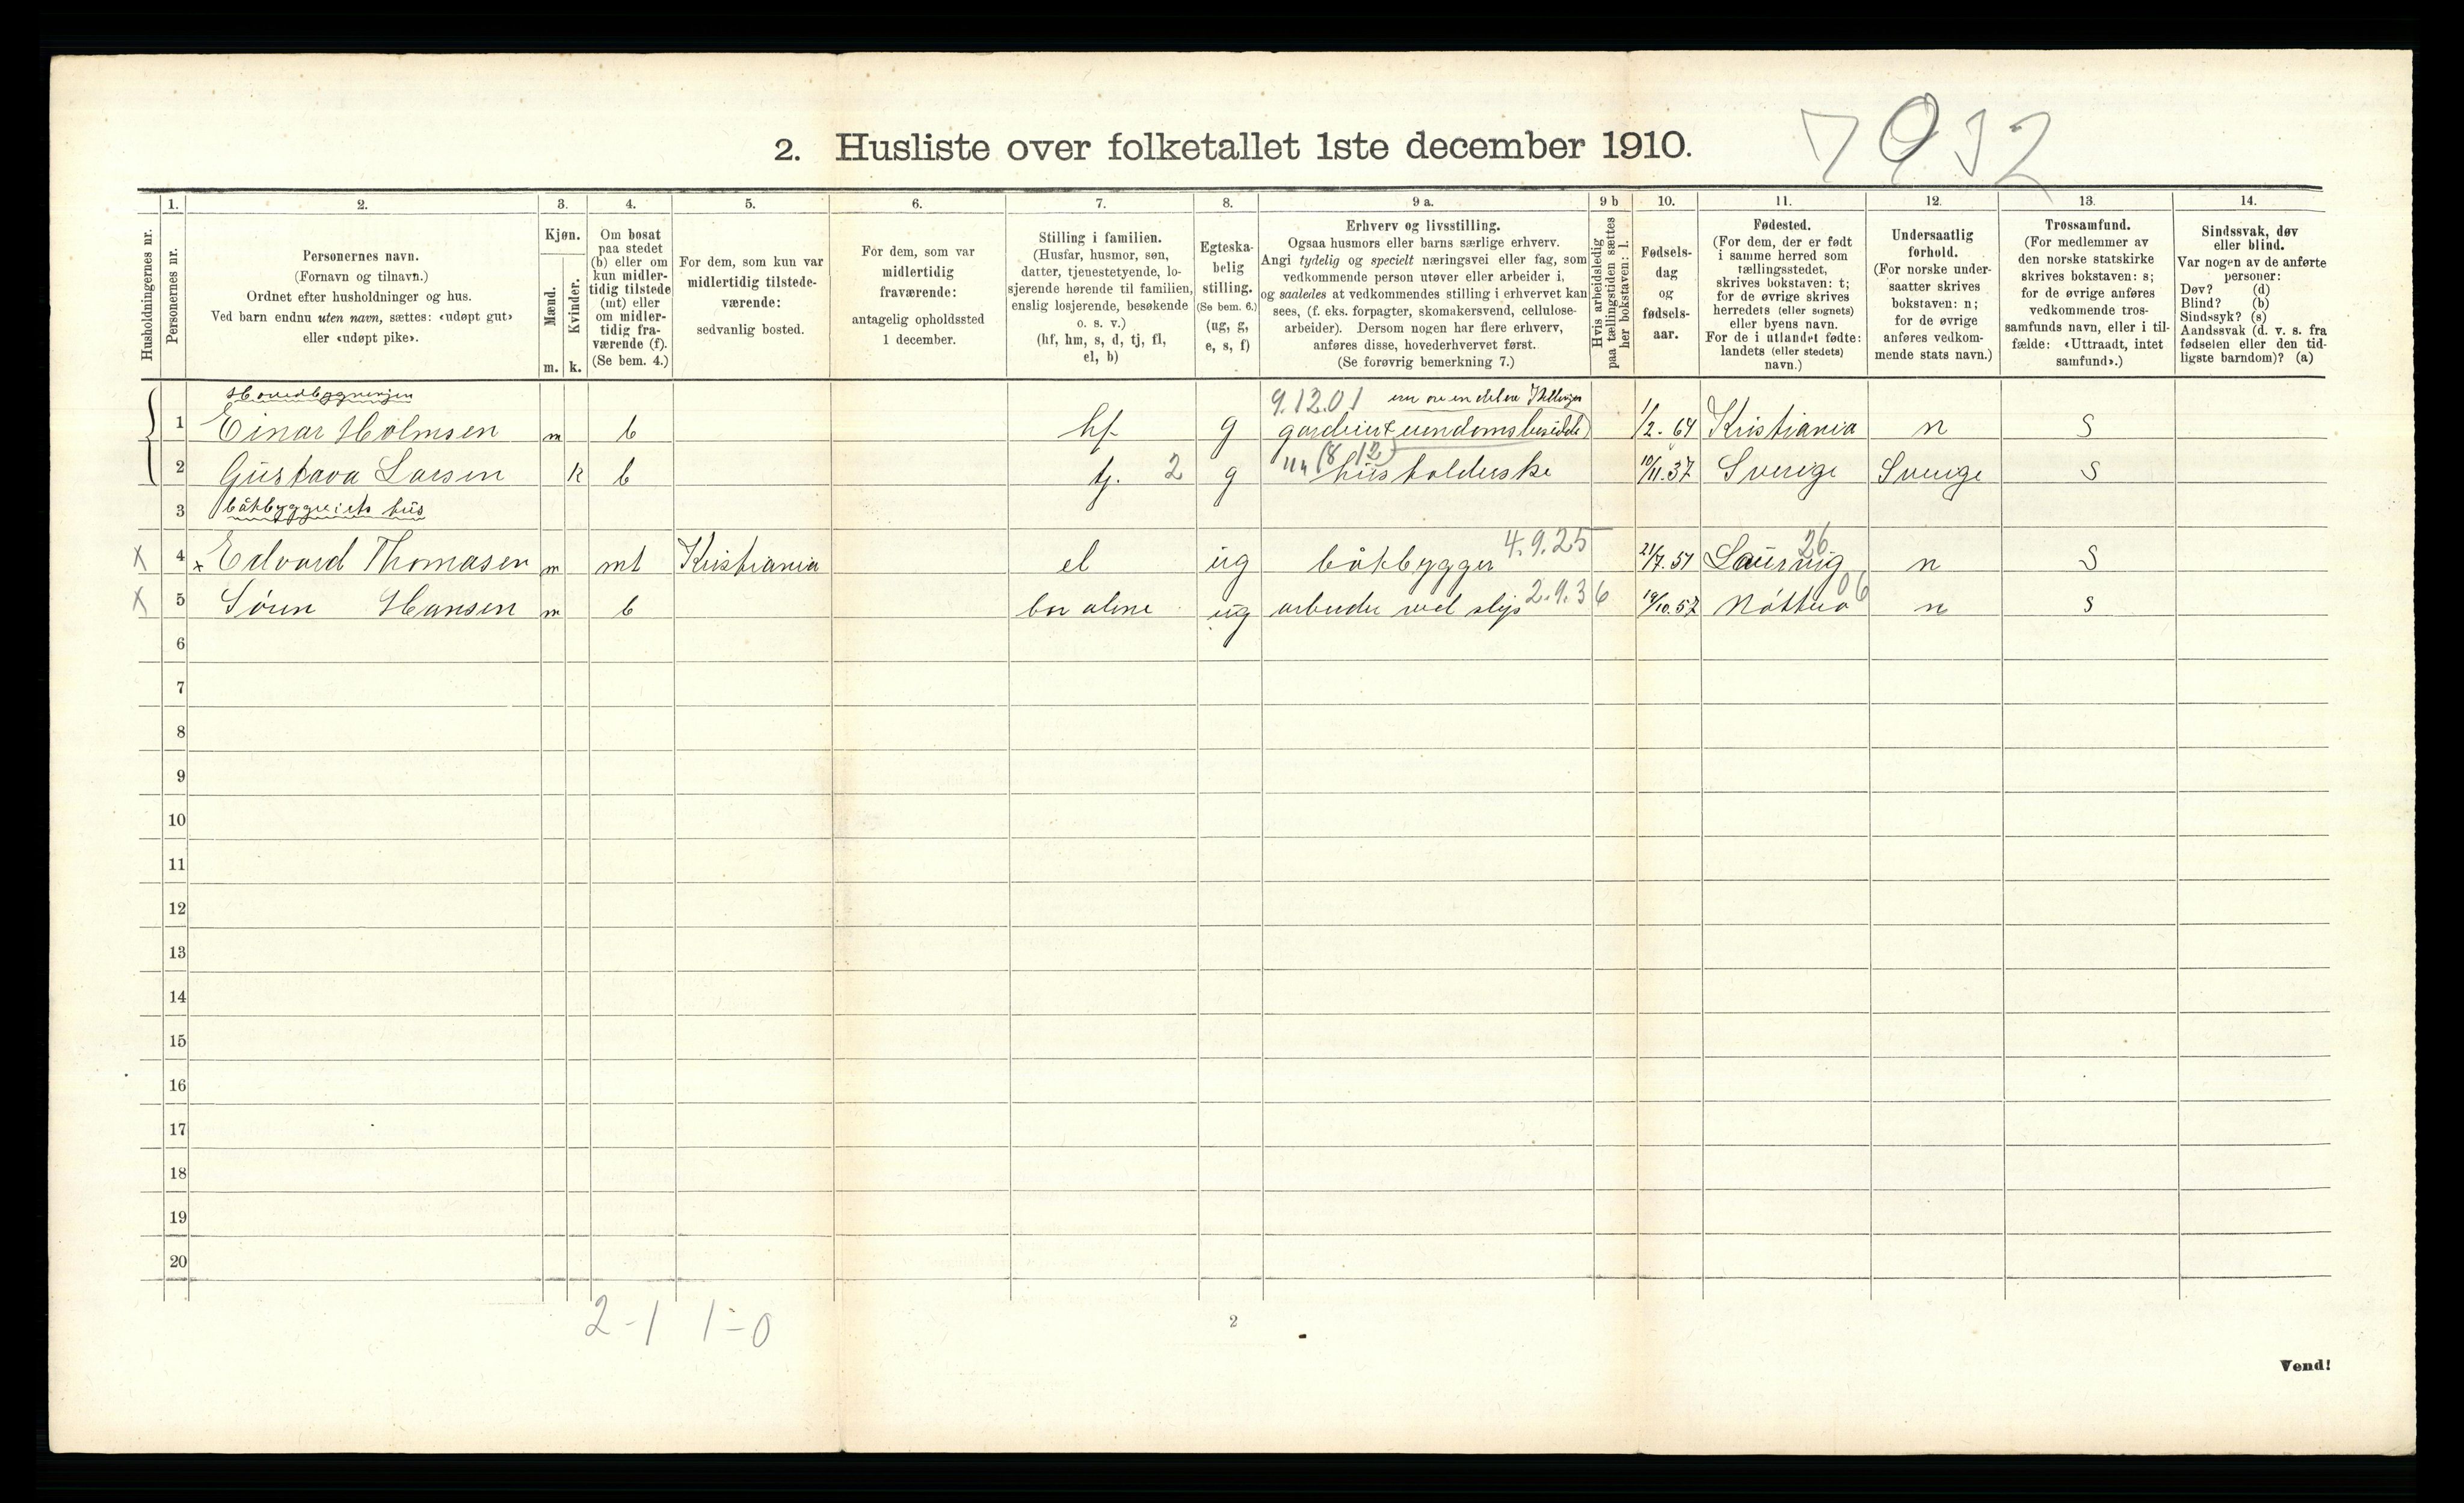 7932
2. Husliste over folketallet 1ste december 1910.
Husholdningernes nr.
1. Personernes nr.
2. Personernes navn.
(Fornavn og tilnavn.)
Ordnet efter husholdninger og hus.
Ved barn endnu uten navn, sættes: «udøpt gut»
eller «udøpt pike».
3. Kjøn.
Mænd. Kvinder.
m. k.
4. Om bosat
paa stedet
(b) eller om
kun midler-
tidig tilstede
(mt) eller
om midler-
tidig fra-
værende (f).
(Se bem. 4.)
5. For dem, som kun var
midlertidig tilstede-
værende:
sedvanlig bosted.
6. For dem, som var
midlertidig
fraværende:
antagelig opholdssted
1 december.
7. Stilling i familien.
(Husfar, husmor, søn,
datter, tjenestetyende, lo-
sjerende hørende til familien,
enslig losjerende, besøkende
o. s. v.)
(hf, hm, s, d, tj, fl,
el, b)
8. Egteska-
belig
stilling.
(Se bem. 6.)
(ug, g,
e, s, f)
9 a. Erhverv og livsstilling.
Ogsaa husmors eller barns særlige erhverv.
Angi tydelig og specielt næringsvei eller fag, som
vedkommende person utøver eller arbeider i,
og saaledes at vedkommendes stilling i erhvervet kan
sees, (f. eks. forpagter, skomakersvend, cellulose-
arbeider). Dersom nogen har flere erhverv,
anføres disse, hovederhvervet først.
(Se forøvrig bemerkning 7.)
9 b Hvis arbeidsledig
paa tællingstiden sættes
her bokstaven: l.
10. Fødsels-
dag
og
fødsels-
aar.
11. Fødested.
(For dem, der er født
i samme herred som
tællingsstedet,
skrives bokstaven: t;
for de øvrige skrives
herredets (eller sognets)
eller byens navn.
For de i utlandet fødte:
landets (eller stedets)
navn.)
12. Undersaatlig
forhold.
(For norske under-
saatter skrives
bokstaven: n;
for de øvrige
anføres vedkom-
mende stats navn.)
13. Trossamfund.
(For medlemmer av
den norske statskirke
skrives bokstaven: s;
for de øvrige anføres
vedkommende tros-
samfunds navn, eller i til-
fælde: «Uttraadt, intet
samfund».)
14. Sindssvak, døv
eller blind.
Var nogen av de anførte
personer:
Døv? (d)
Blind? (b)
Sindssyk? (s)
Aandssvak (d. v. s. fra
fødselen eller den tid-
ligste barndom)? (a)
Hovedbygningen 9.12.01
1 Einar Holmsen m b hf g 1/2. 64 Kristiania n s
2 Gustava Larsen k b tj. 2 g husholderske 10/11. 37 Sverige Sverige s
3 båtbyggeriets hus
4.9.25 26
4 x Edvard Thomasen m mt Kristiania el ug båtbygger 21/7. 51 Laurvig n s
2.9.36 06
5 Søren Hansen m b bor alene ug arbeider ved slip 19/10. 57 Nøtterø n s
6
7
8
9
10
11
12
13
14
15
16
17
18
19
20
2-1 1-0
2
Vend!